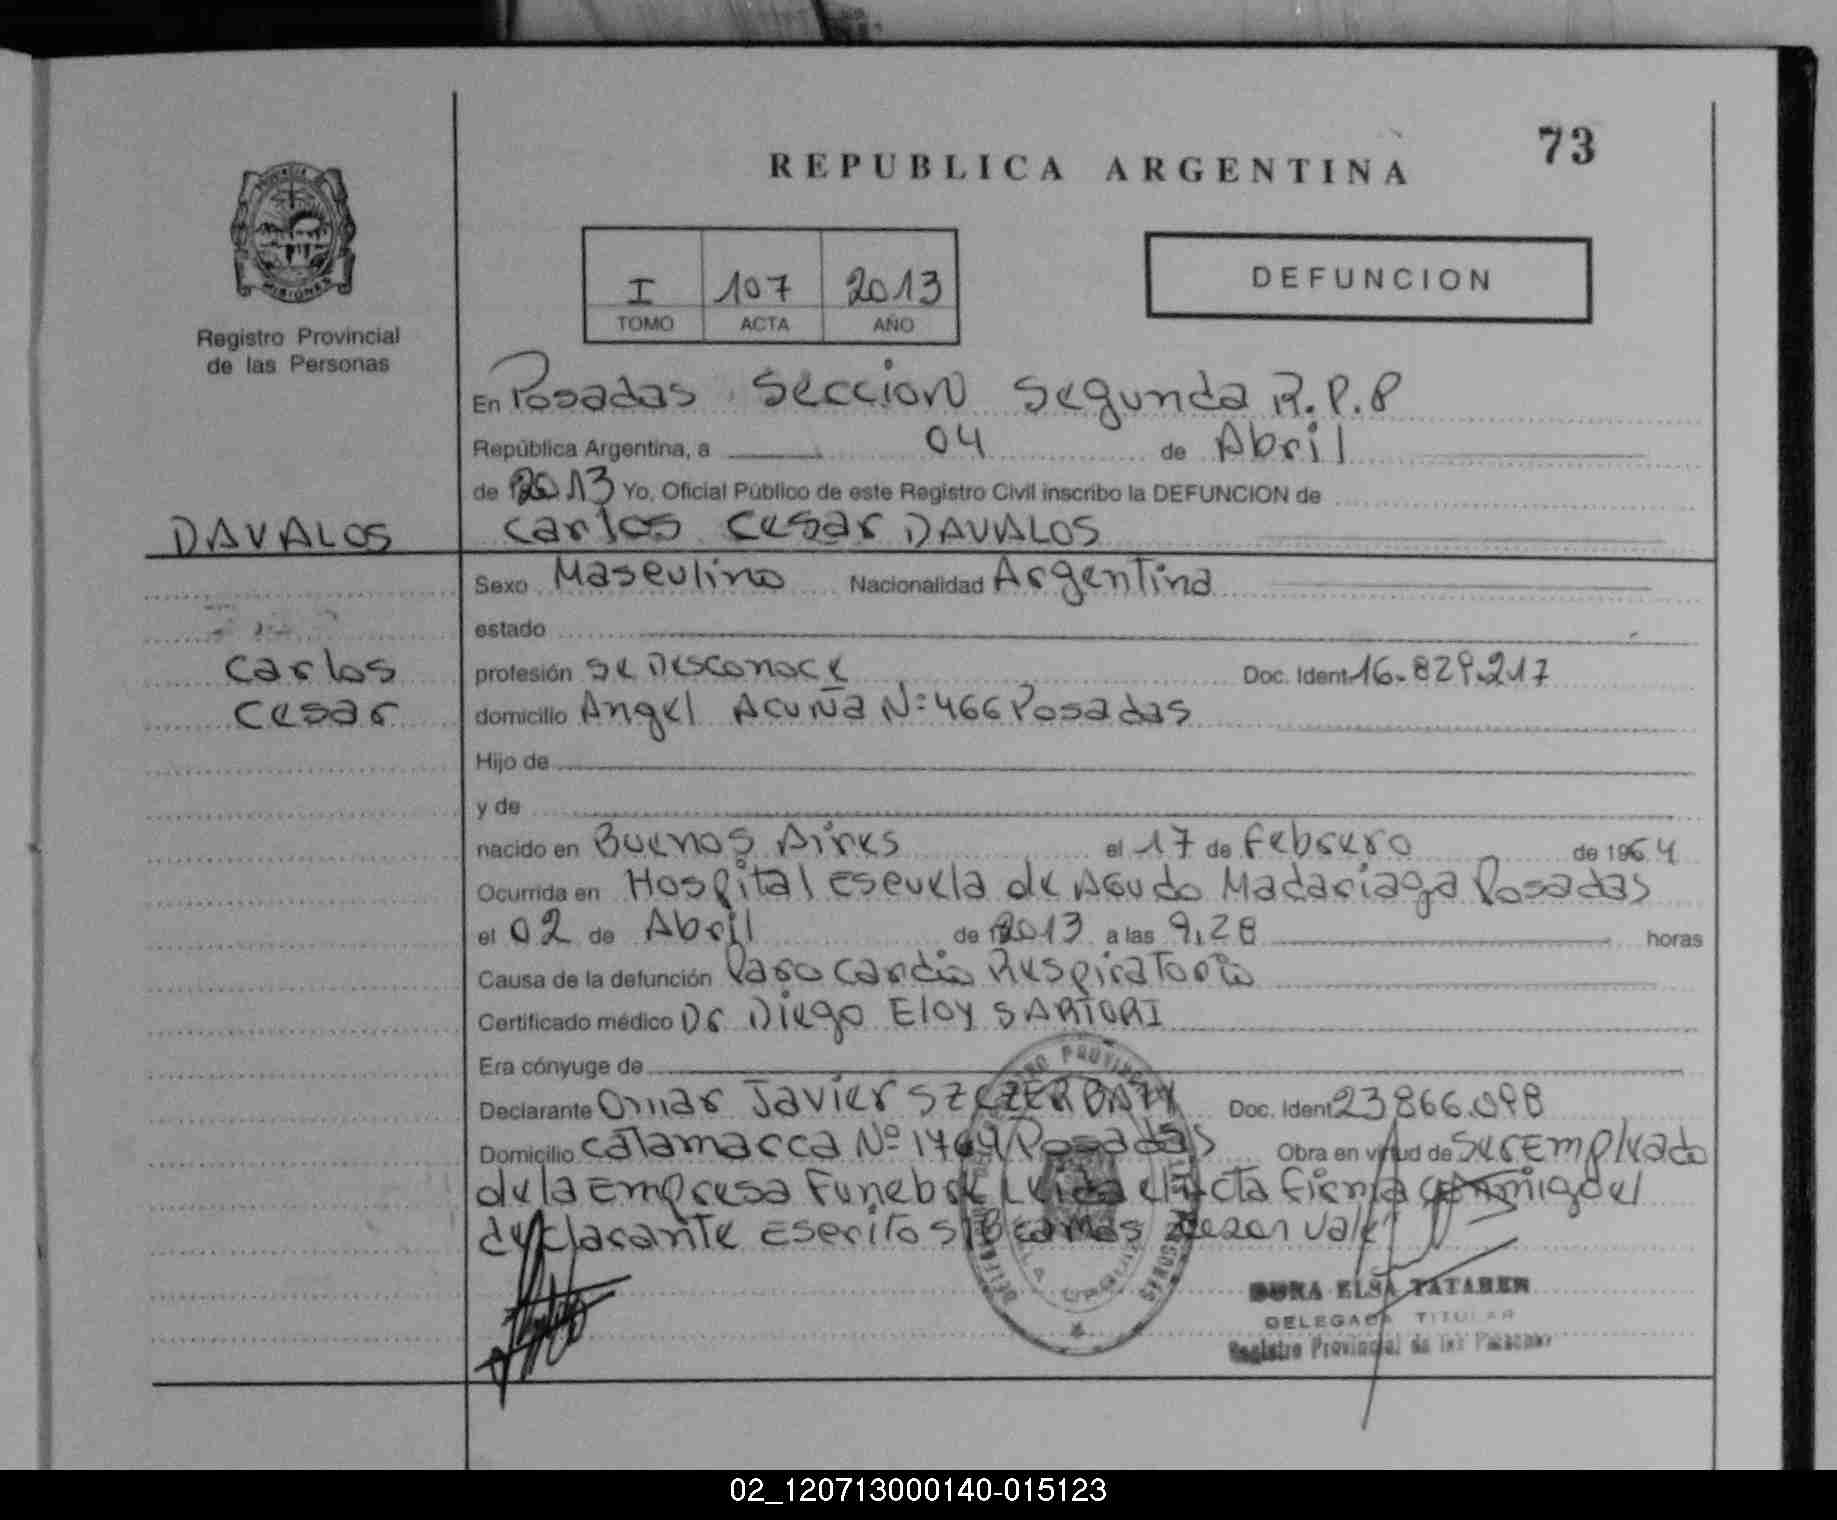 73
REPUBLICA ARGENTINA
PROVINCIA DE
MISIONES
Registro Provincial
de las Personas
DEFUNCION
I 107 2013
TOMO ACTA AÑO
En Posadas Seccion Segunda R.P.P
República Argentina, a 04 de Abril
de 2013 Yo, Oficial Público de este Registro Civil inscribo la DEFUNCION de
DAVALOS Carlos Cesar DAVALOS
Sexo Masculino Nacionalidad Argentina
estado
Carlos profesión Se Desconoce Doc. Ident. 16.829.217
Cesar domicilio Angel Acuña Nº 466 Posadas
Hijo de
y de
nacido en Buenos Aires el 17 de Febrero de 1964
Ocurrida en Hospital Escuela de Agudo Madariaga Posadas
el 02 de Abril de 2013 a las 9,28 horas
Causa de la defunción Paro Cardio Respiratorio
Certificado médico Dr Diego Eloy SARTORI
Era cónyuge de
Declarante Omar Javier SZCZERBATY Doc. Ident. 23866.098
Domicilio Catamarca Nº 1769 Posadas Obra en virtud de Ser Empleado
de la Empresa Funebre Leida el Acta Firma conmigo el
declarante Escrito
DELEGADA TITULAR
Registro Provincial de las Personas
02_120713000140-015123